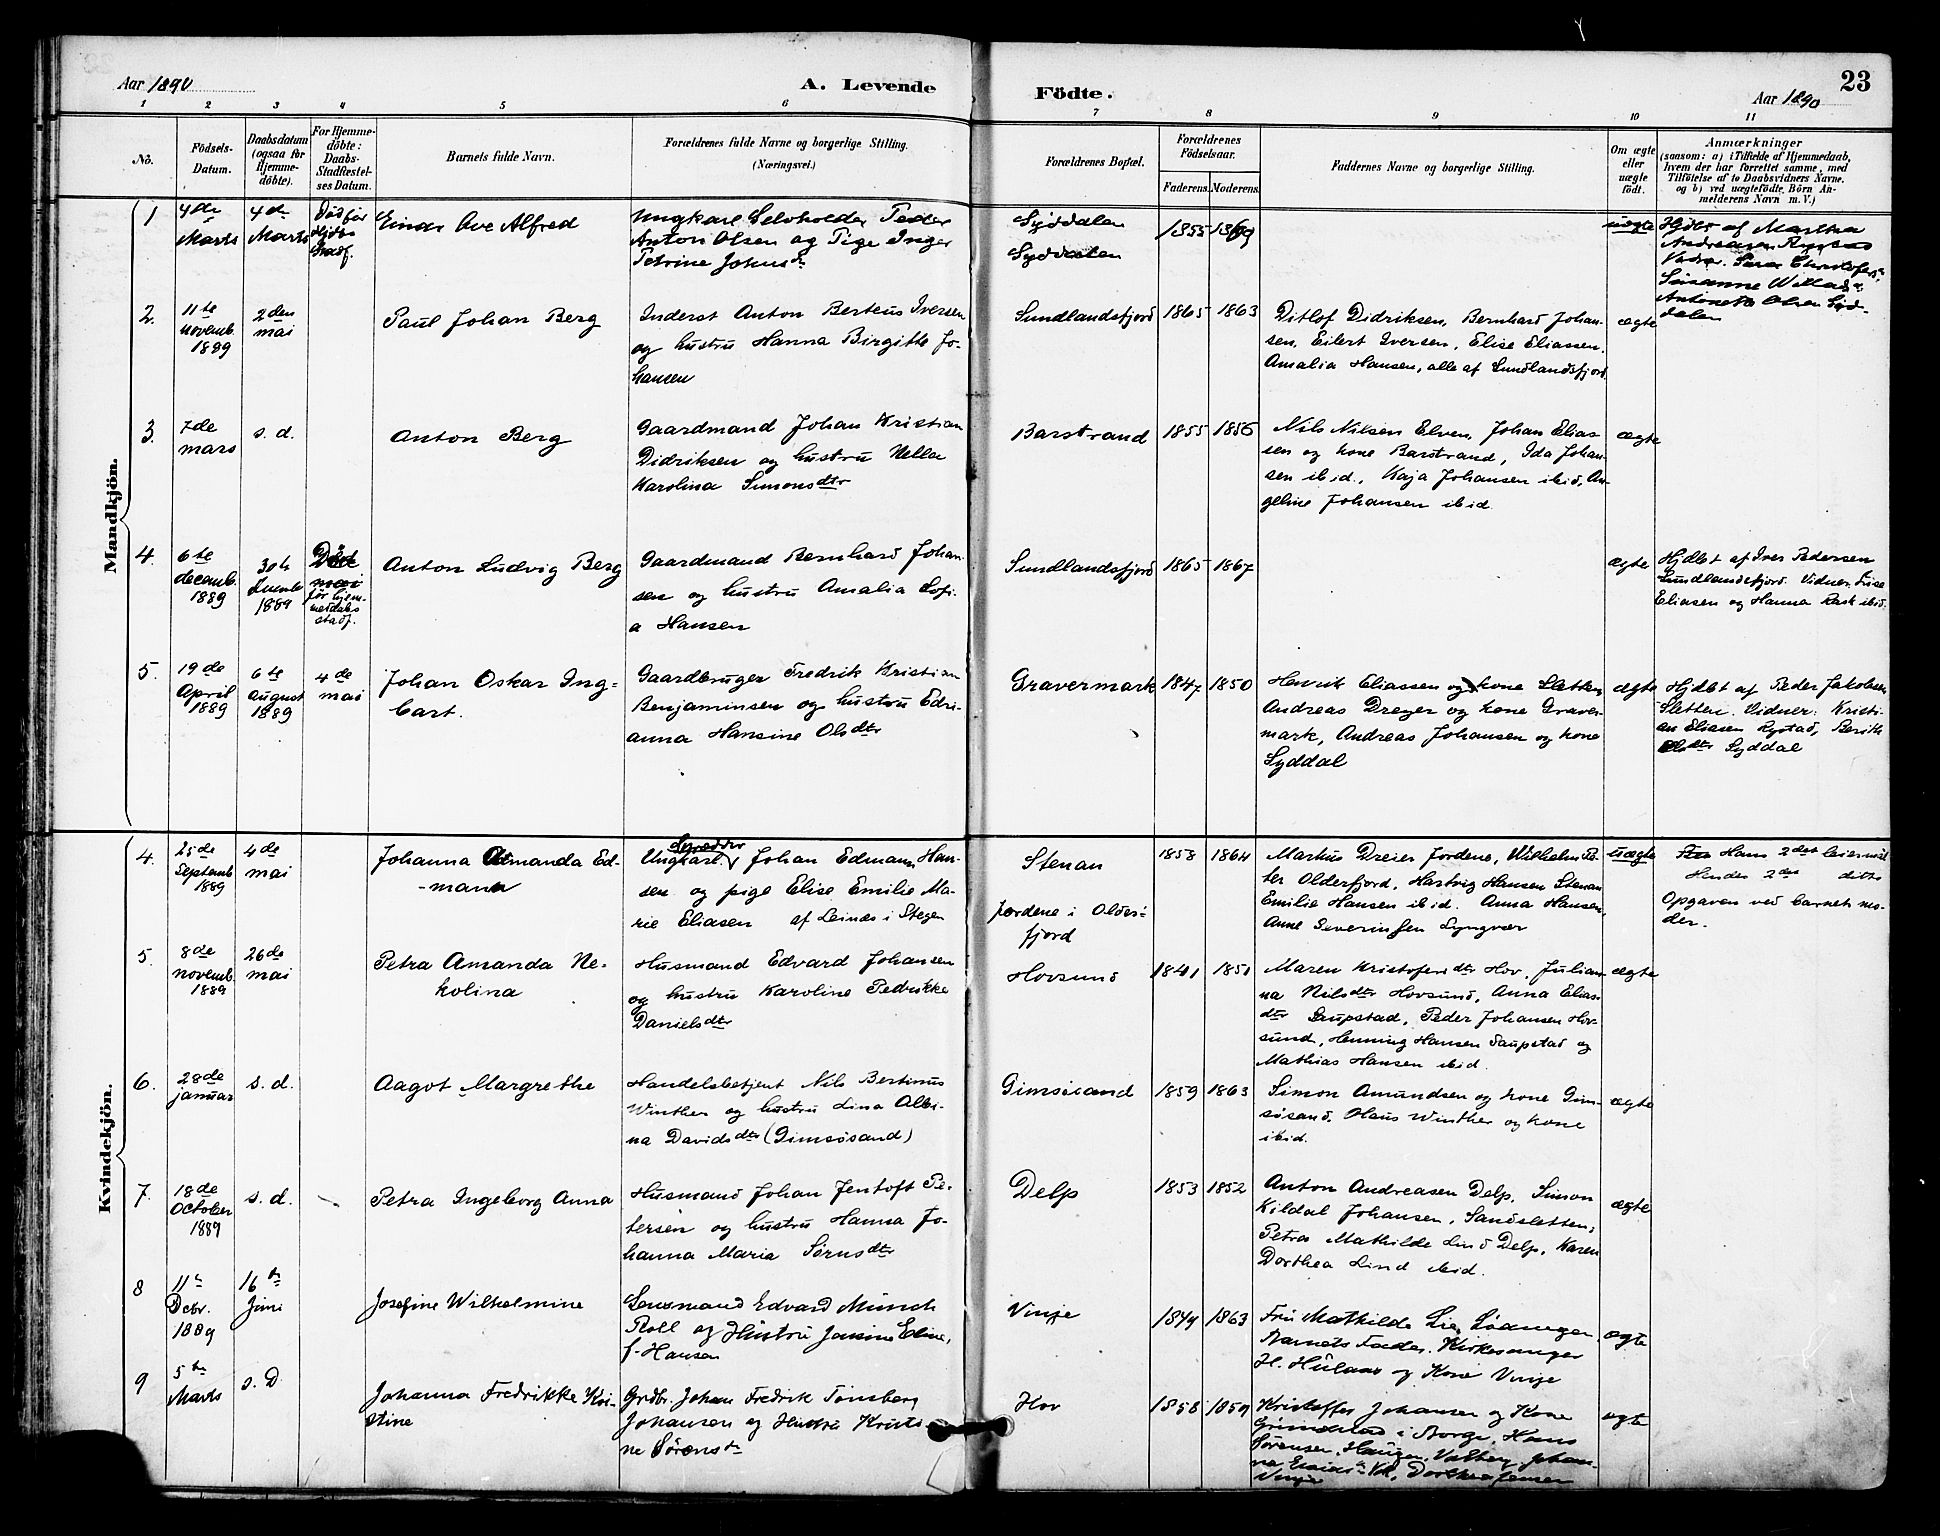 Aar 1890
A. Levende
Födte.
Aar 1890
23
1 2 3 4 5 6 7 8 9 10 11
No.
Födsels-
Datum.
Daabsdatum
(ogsaa for
Hjemme-
döbte).
For Hjemme-
döbte:
Daabs-
Stadfæstel-
ses Datum.
Barnets fulde Navn.
Forældrenes fulde Navne og borgerlige Stilling.
(Næringsvei.)
Forældrenes Bopæl.
Forældrenes
Födselsaar.
Faderens.
Moderens.
Faddernes Navne og borgerlige Stilling.
Om ægte
eller
uægte
födt.
Anmærkninger
(saasom: a) i Tilfælde af Hjemmedaab,
hvem der har forrettet samme, med
Tilföielse af to Daabsvidners Navne,
og b) ved uægtefödte Börn An-
melderens Navn m. V.)
Mandkjön.
1
4de
Marts
4de
Marts
Död før
Hjdbs
Stadf.
Einar Ove Alfred
Ungkarl Selvholder Peder
Anton Olsen og Pige Inger
Petrine Johnsdr
Syddalen
Syddalen
1855 1869
uægte
Hjdbt af Martha
Andreasen Rystad
Vidner. Christofersdr
Susanne
Antonette Olsen Syd-
dalen
2.
11te
novemb.
1889
2den
mai
Paul Johan Berg
Inderst Anton Berteus Iversen
og hustru Hanna Birgitte Jo-
hansen
Sundlandsfjord
1865 1863
Ditlof Didriksen, Bernhard Johan-
sen, Eilert Iversen, Elise Eliassen,
Amalia Hansen, alle af Sundlandsfjord.
ægte
3.
7de
mars
s. d.
Anton Berg
Gaardmand Johan Kristian
Didriksen og hustru Nella
Karolina Simonsdtr
Barstrand
1855 1856
Nils Nilsen Elven, Johan Elias-
sen og kone Barstrand, Ida Johan-
sen ibid., Kaja Johansen ibid, An-
geline Johansen ibid.
ægte
4.
6te
decemb.
1889
30te
1889
Död
mai
før hjem-
medaabs
stadf.
Anton Ludvig Berg
Gaardmand Bernhard Johan-
sen og hustru Amalia Sofi-
a Hansen
Sundlandsfjord
1865 1867
ægte
Hjdbt af Iver Pedersen
Sundlandsfjord. Vidner: Elise
Eliasen og Hanna Rask ibid.
5.
19de
April
1889
6te
August
1889
4de
mai
Johan Oskar Ing-
bart.
Gaardbruger Fredrik Kristian
Benjaminsen og hustru Edri-
anna Hansine Olsdtr
Gravermark
1847 1850
Henrik Eliassen og kone Sletten,
Andreas Dreyer og kone Graver-
mark, Andreas Johansen og kone
Syddal
ægte
Hjdbt af Peder Jakobsen
Sletten. Vidner: Kristi-
an Eliasen Rystad, Berith
Olsdtr Syddal
Kvindekjön.
4.
25de
Septemb.
1889
4de
mai
Johanna Amanda Ed-
manna
Ungkarl Johan Edmann Han-
sen og pige Elise Emilie Ma-
rie Eliasen af Leines i Stegen
Stenan
Jordene i Oldes-
fjord
1858 1864
Markus Dreier Jordene, Wilhelm Pe-
ter Olderfjord, Hartvig Hansen Stenan
Emilie Hansen ibid. Anna Hansen,
Anne Severinsen Lyngvær
uægte
Hans 2det leiermål
Hendes 2det ditto
Opgaven ved barnets mo-
der.
5.
8de
novemb.
1889
26de
mai
Petra Amanda Ne-
kolina
Husmand Edvard Johansen
og hustru Karoline Pedrikke
Danielsdtr
Hovsund
1841 1851
Maren Kristofersdtr Hov, Julian-
na Nilsdtr Hovsund, Anna Elias-
dtr Saupstad, Peder Johansen Hov-
sund, Henning Hansen Saupstad og
Mathias Hansen ibid.
ægte
6.
28de
januar
s. d.
Aagot Margrethe
Handelsbetjent Nils Bertinus
Winther og hustru Lina Albi-
na Davidsdtr (Gimsøsand)
Gimsösand
1859 1863
Simon Amundsen og kone Gim-
sösand, Hans Winther og kone
ibid.
ægte
7.
18de
October
1889
s. d.
Petra Ingeborg Anna
Husmand Johan Jentoft Pe-
tersen og hustru Hanna Jo-
hanna Maria Sørnsdtr
Delp
1853 1852
Anton Andreasen Delp, Simon
Kildal Johansen, Sandsletten,
Petra Mathilde Lind Delp, Karen
Dorthea Lind ibid.
ægte
8
11te
Dcbr.
1889
16de
Juni
Josefine Wilhelmine
Lensmand Edvard Münch
Roll og Hustru Jensine Edine,
f. Hansen
Vinje
1849 1863
Fru Mathilde Lie,
Barnets Fader. Kirkesanger
H. Hulaas og Kone Vinje
ægte
9
5te
Marts
s. D.
Johanna Fredrikke Kri-
stine
Grdbr. Johan Fredrik Tönsberg
Johansen og Hustru Kristi-
ne Sörensdr
Hov
1858 1859
Kristoffer Johansen og Kone
Grindstad i Borge, Hans
Sörensen, Haugen, Valberg, Johan-
na Dorthea Jensen
Vinje
ægte